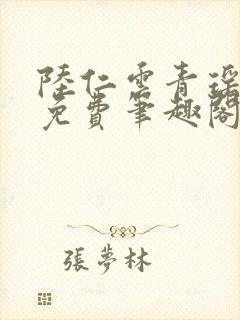 陸仁雲青瑤
免費筆趣閣
張夢林